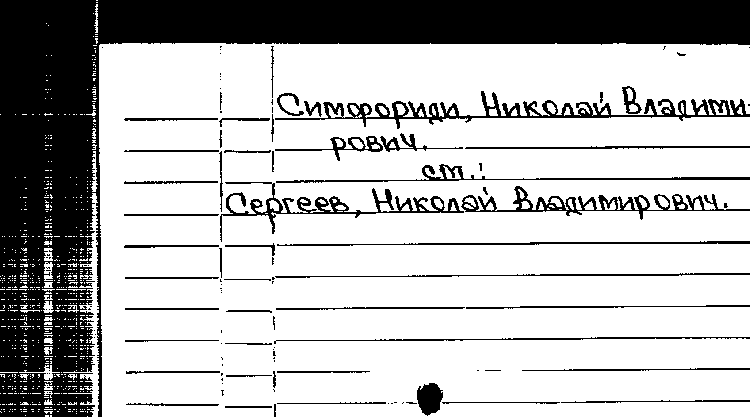 Симфориди, Николай Владими-
рович.
ст.:
Сергеев, Николай Владимирович.